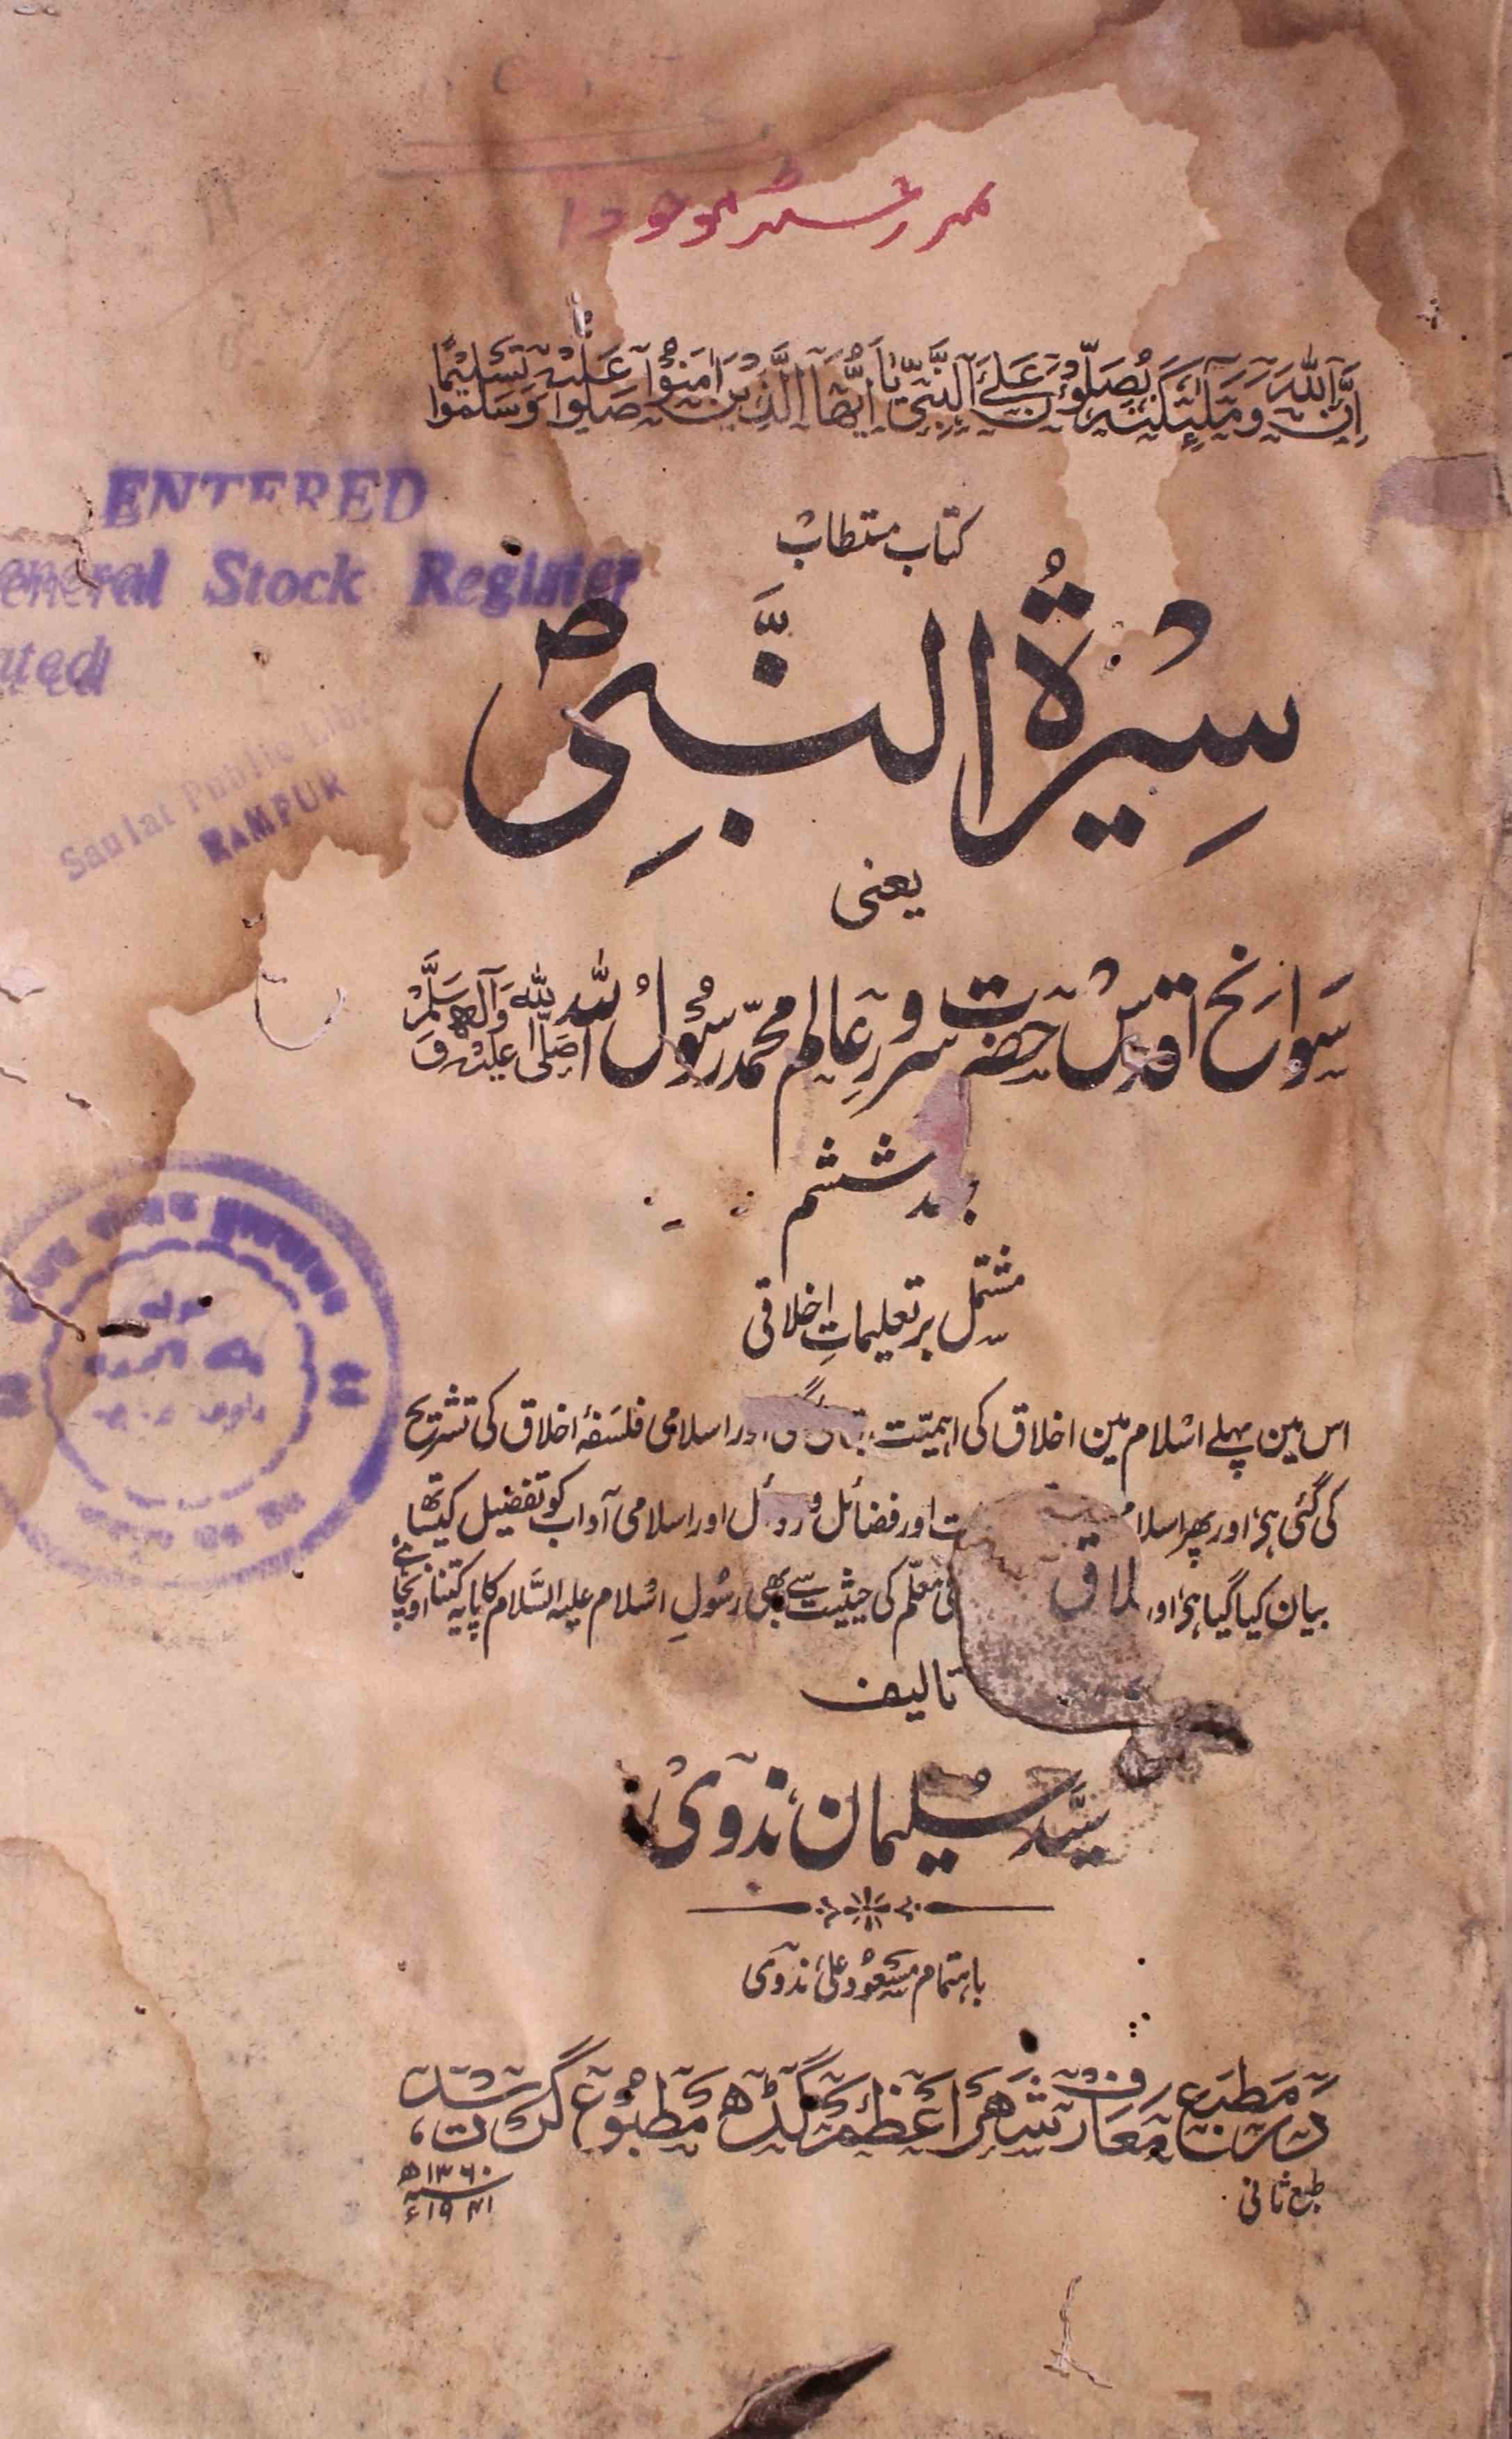 اِنَّ اللّٰهَ وَمَلٰٓئِكَتَهٗ يُصَلُّوْنَ عَلَى النَّبِيِّ يٰٓاَيُّهَا الَّذِيْنَ اٰمَنُوْا صَلُّوْا عَلَيْهِ وَسَلِّمُوْا تَسْلِيْمًا
ENTERED
General Stock Register
کتاب مستطاب
سِیْرَۃُ النَّبِیِّ ؐ
Saulat Public
RAMPUR
یعنی
سوانح اقدس حضرت سرور عالم محمد رسول اللہ صلی اللہ علیہ وآلہ وسلم
ششم
مشتمل بر تعلیماتِ اخلاقی
اس مین پہلے اسلام مین اخلاق کی اہمیّت اور اسلامی فلسفۂ اخلاق کی تشریح
کی گئی ہی، اور پھر اور فضائل و اور اسلامی آداب کو تفصیل کیساتھ
بیان کیا گیا ہی، معلّم کی حیثیت سے بھی رسولِ اسلام علیہ السَّلام کا پایہ کتنا اونچا ہے
تالیف
سیّد سلیمان ندوی
باہتمام مسعود علی ندوی
در مطبع معارف شہر اعظم گڈھ مطبوع گردید
طبع ثانی ۱۳۶۰ھ
۱۹۴۱ء